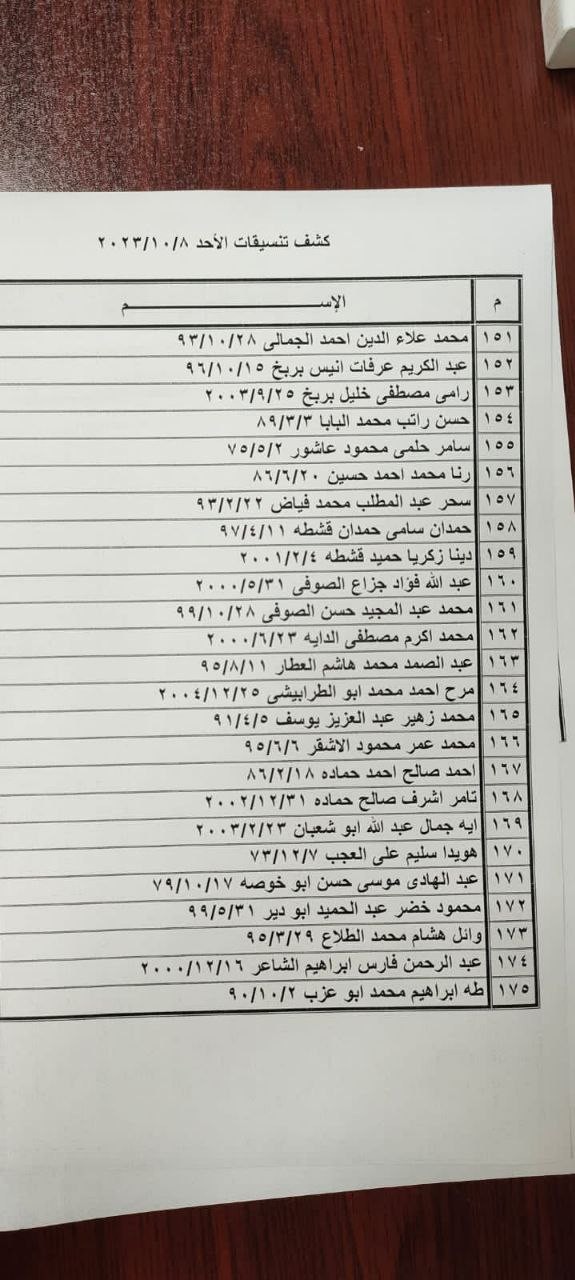 كشف تنسيقات الأحد ٢٠٢٣/١٠/٨
م الإســـــــــــــــــــــم
١٥١ محمد علاء الدين احمد الجمالى ٩٣/١٠/٢٨
١٥٢ عبد الكريم عرفات انيس بربخ ٩٦/١٠/١٥
١٥٣ رامى مصطفى خليل بربخ ٢٠٠٣/٩/٢٥
١٥٤ حسن راتب محمد البابا ٨٩/٣/٣
١٥٥ سامر حلمى محمود عاشور ٧٥/٥/٢
١٥٦ رنا محمد احمد حسين ٨٦/٦/٢٠
١٥٧ سحر عبد المطلب محمد فياض ٩٣/٢/٢٢
١٥٨ حمدان سامى حمدان قشطه ٩٧/٤/١١
١٥٩ دينا زكريا حميد قشطه ٢٠٠١/٢/٤
١٦٠ عبد الله فؤاد جزاع الصوفى ٢٠٠٠/٥/٣١
١٦١ محمد عبد المجيد حسن الصوفى ٩٩/١٠/٢٨
١٦٢ محمد اكرم مصطفى الدايه ٢٠٠٠/٦/٢٣
١٦٣ عبد الصمد محمد هاشم العطار ٩٥/٨/١١
١٦٤ مرح احمد محمد ابو الطرابيشى ٢٠٠٤/١٢/٢٥
١٦٥ محمد زهير عبد العزيز يوسف ٩١/٤/٥
١٦٦ محمد عمر محمود الاشقر ٩٥/٦/٦
١٦٧ احمد صالح احمد حماده ٨٦/٢/١٨
١٦٨ تامر اشرف صالح حماده ٢٠٠٢/١٢/٣١
١٦٩ ايه جمال عبد الله ابو شعبان ٢٠٠٣/٢/٢٣
١٧٠ هويدا سليم على العجب ٧٣/١٢/٧
١٧١ عبد الهادى موسى حسن ابو خوصه ٧٩/١٠/١٧
١٧٢ محمود خضر عبد الحميد ابو دير ٩٩/٥/٣١
١٧٣ وائل هشام محمد الطلاع ٩٥/٣/٢٩
١٧٤ عبد الرحمن فارس ابراهيم الشاعر ٢٠٠٠/١٢/١٦
١٧٥ طه ابراهيم محمد ابو عزب ٩٠/١٠/٢